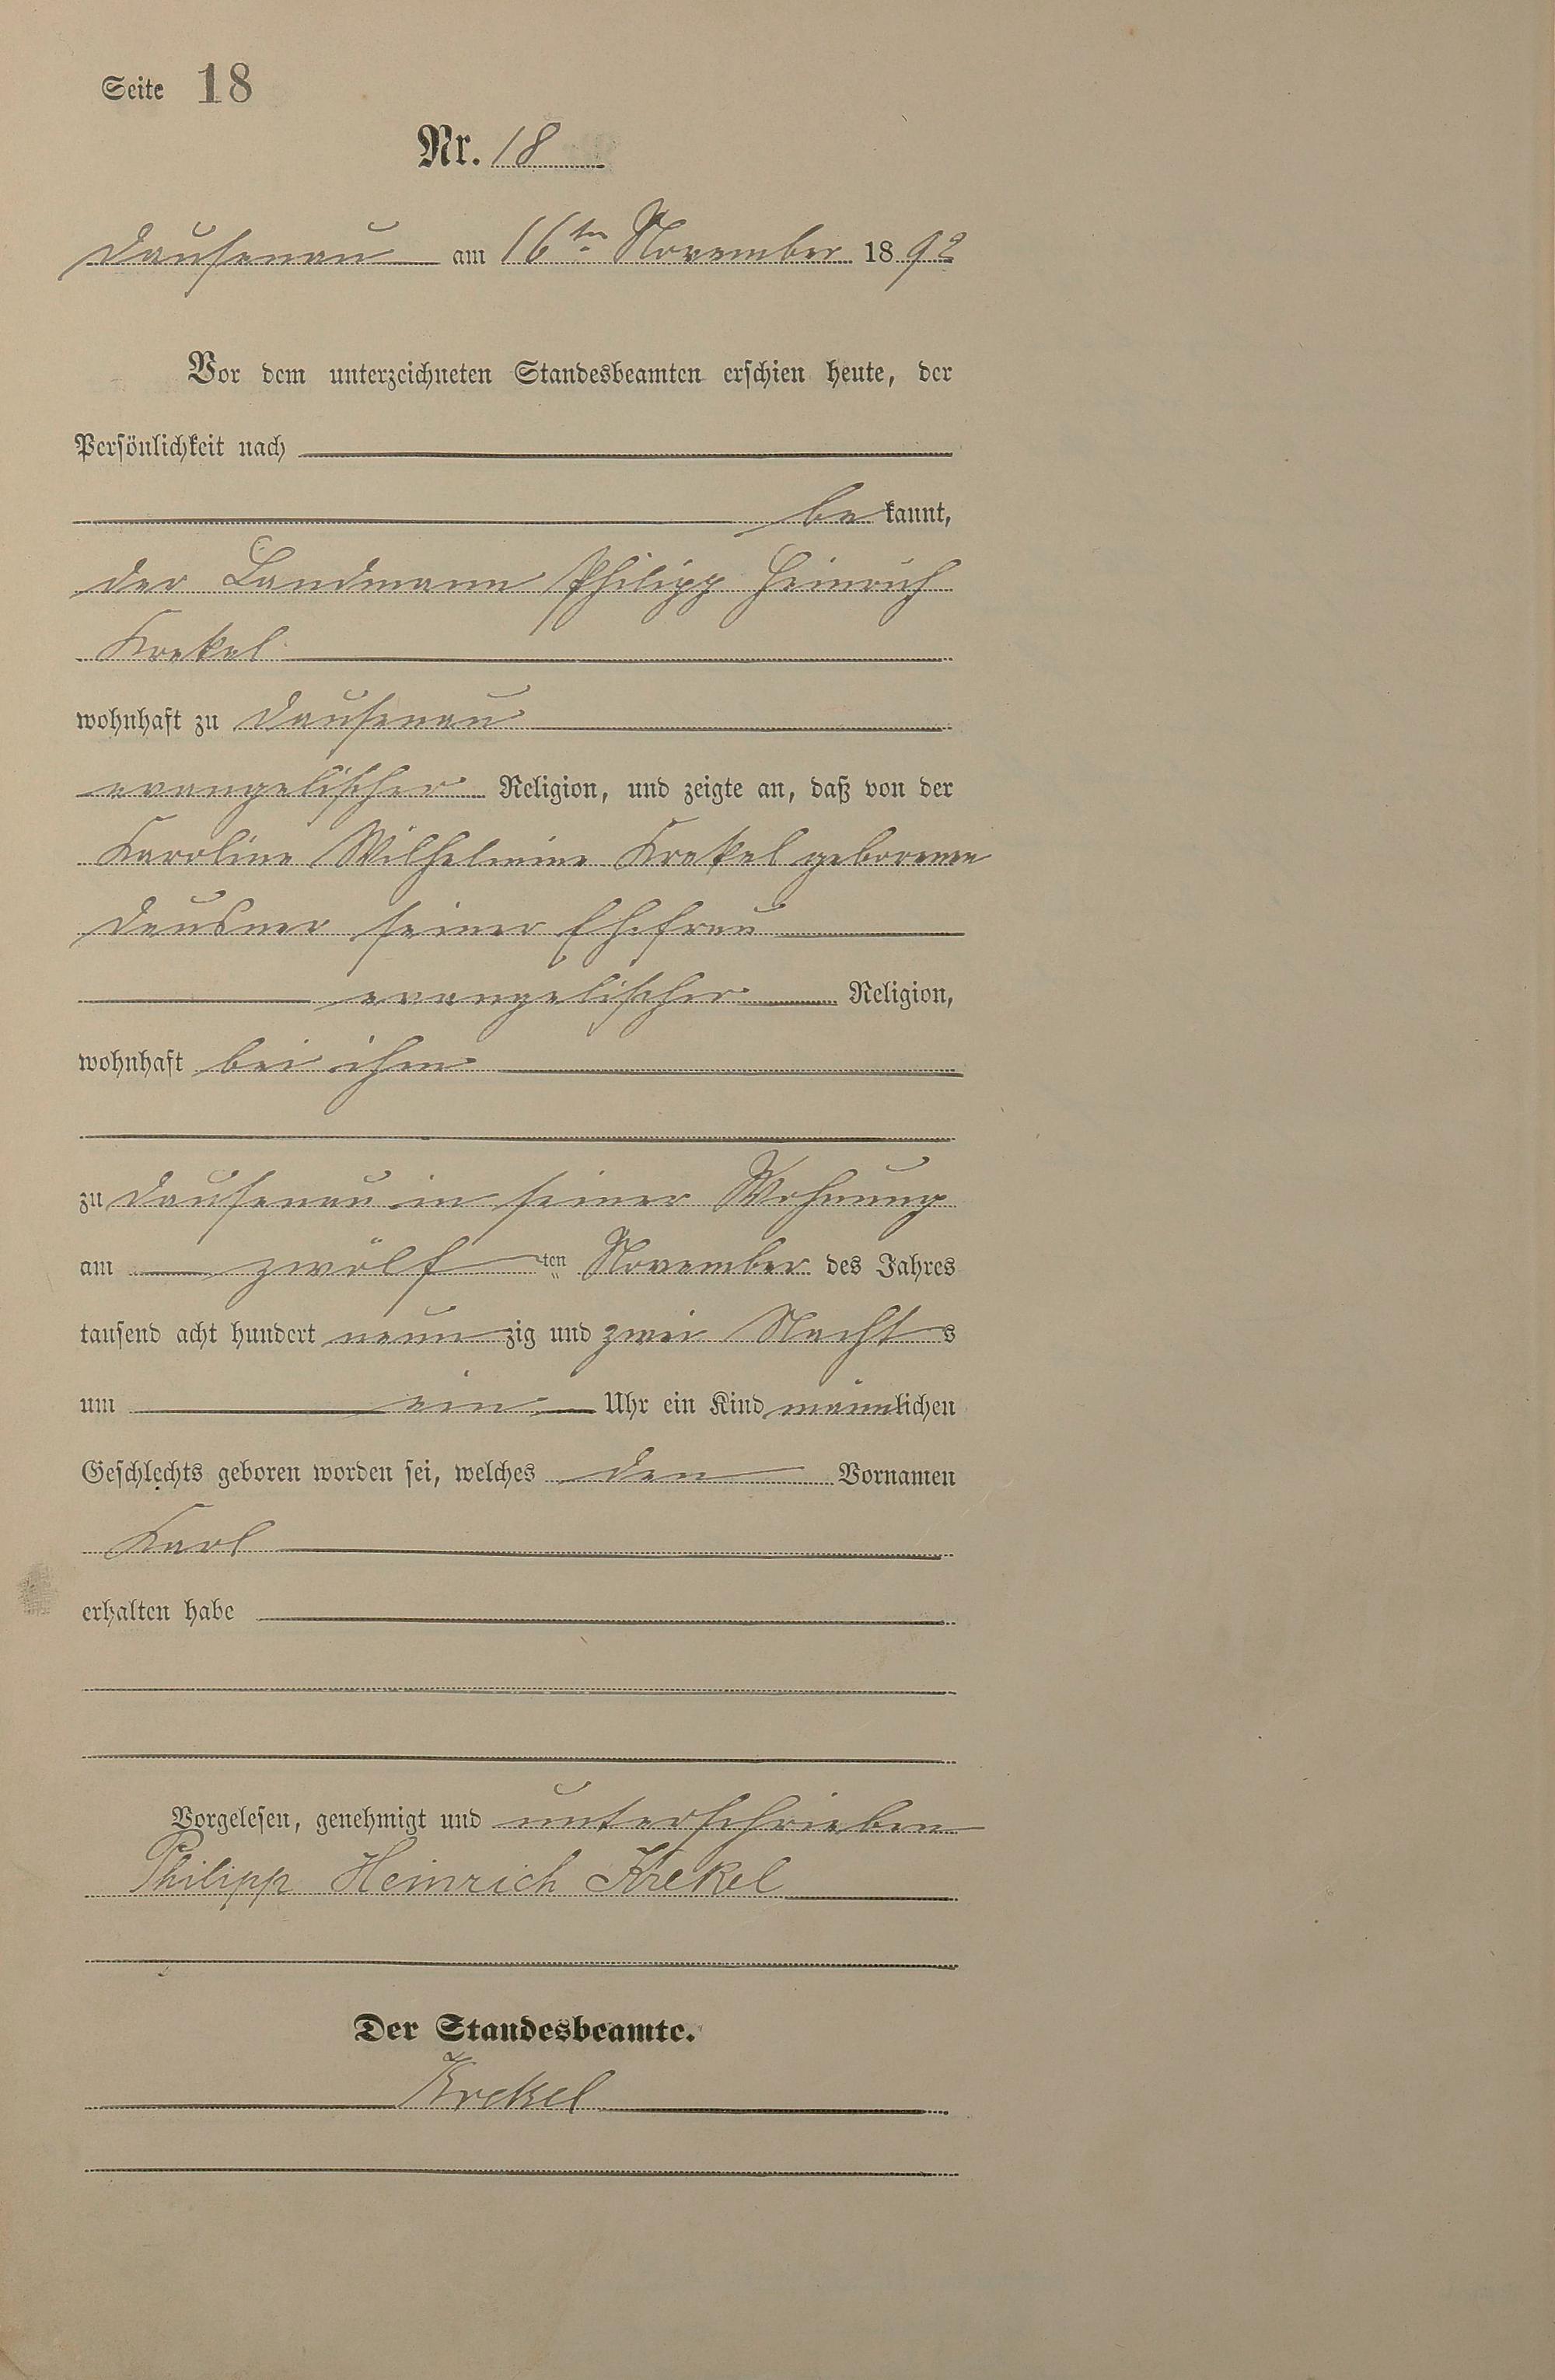 Seite 18
Nr. 18
Dausenau am 16ten November 1892
Vor dem unterzeichneten Standesbeamten erschien heute, der
Persönlichkeit nach
be kannt,
der Landmann Philipp Heinrich
Krekel
wohnhaft zu Dausenau
evangelischer Religion, und zeigte an, daß von der
Karoline Wilhelmine Krekel geborenen
Deusner seiner Ehefrau
evangelischer Religion,
wohnhaft bei ihm
zu Dausenau in seiner Wohnung
am zwölf ten November des Jahres
tausend acht hundert neun zig und zwei Nachts
um ein Uhr ein Kind männlichen
Geschlechts geboren worden sei, welches den Vornamen
Karl
erhalten habe
Vorgelesen, genehmigt und unterschrieben
Philipp Heinrich Krekel
Der Standesbeamte.
Krekel